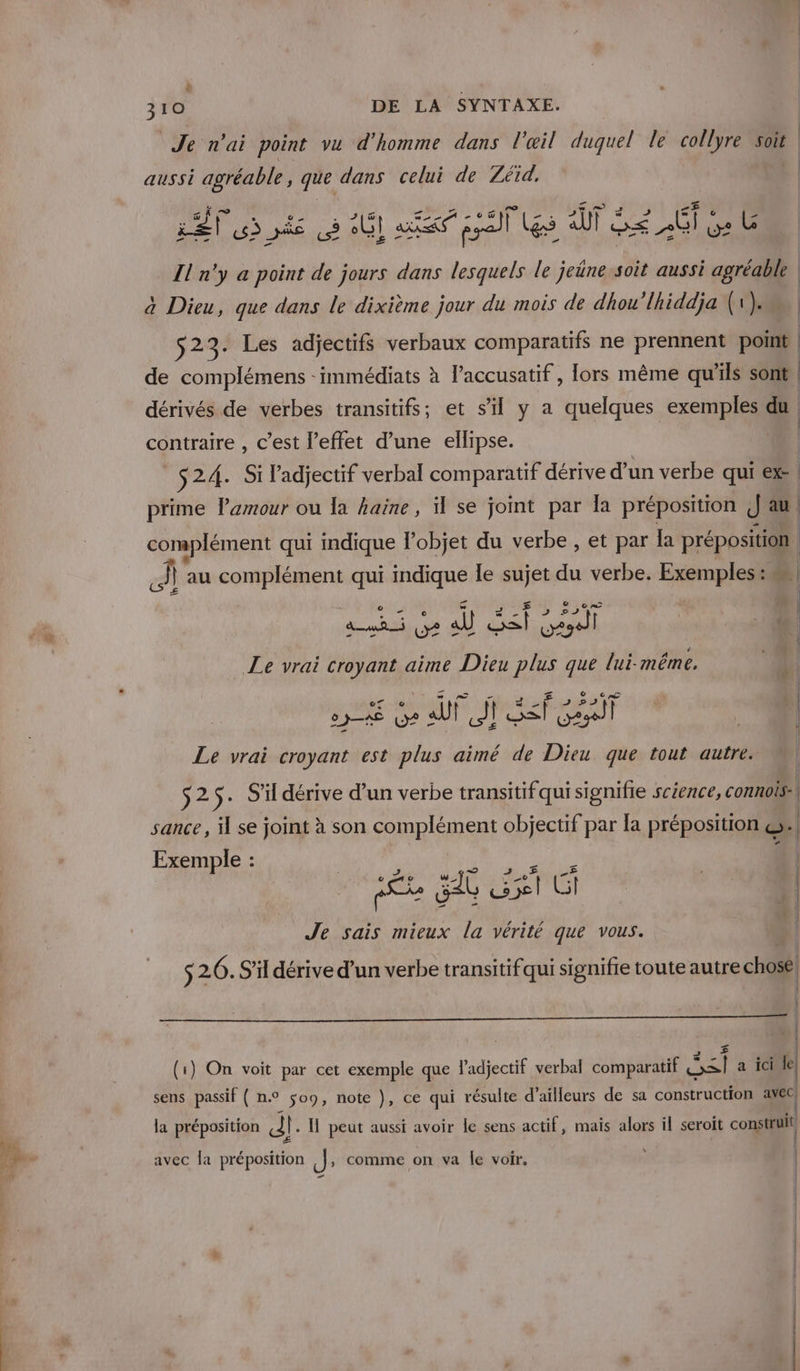 310 DE LA SYNTAXE.
Je n'ai point vu d'homme dans l'œil duquel le collyre soit
aussi agréable, que dans celui de Zéïd.
مَا مِنْ أَيَّامٍ
Il n'y a point de jours dans lesquels le jeûne soit aussi agréable
à Dieu, que dans le dixième jour du mois de dhou'lhiddja (1).
523. Les adjectifs verbaux comparatifs ne prennent point
de complémens immédiats à l'accusatif, lors même qu'ils sont
dérivés de verbes transitifs; et s'il y a quelques exemples du
contraire, c'est l'effet d'une ellipse.
524. Si l'adjectif verbal comparatif dérive d'un verbe qui ex-
prime l'amour ou la haine, il se joint par la préposition لِ au
complément qui indique l'objet du verbe, et par la préposition
إِلَى au complément qui indique le sujet du verbe. Exemples:
اَلْمُؤْمِنُ أَحَبُّ لِلّٰهِ مِنْ نَفْسِهِ
Le vrai croyant aime Dieu plus que lui-même.
اَلْمُؤْمِنُ أَحَبُّ إِلَى ٱللّٰهِ مِنْ غَيْرِهِ
Le vrai croyant est plus aimé de Dieu que tout autre.
525. S'il dérive d'un verbe transitif qui signifie science, connois-
sance, il se joint à son complément objectif par la préposition بِ.
Exemple:
أَنَا أَعْرَفُ بِٱلْحَقِّ مِنْكُمْ
Je sais mieux la vérité que vous.
526. S'il dérive d'un verbe transitif qui signifie toute autre chose
(1) On voit par cet exemple que l'adjectif verbal comparatif أَحَبُّ a ici le
sens passif ( n.º 509, note ), ce qui résulte d'ailleurs de sa construction avec
la préposition إِلَى. Il peut aussi avoir le sens actif, mais alors il seroit construit
avec la préposition لِ, comme on va le voir.